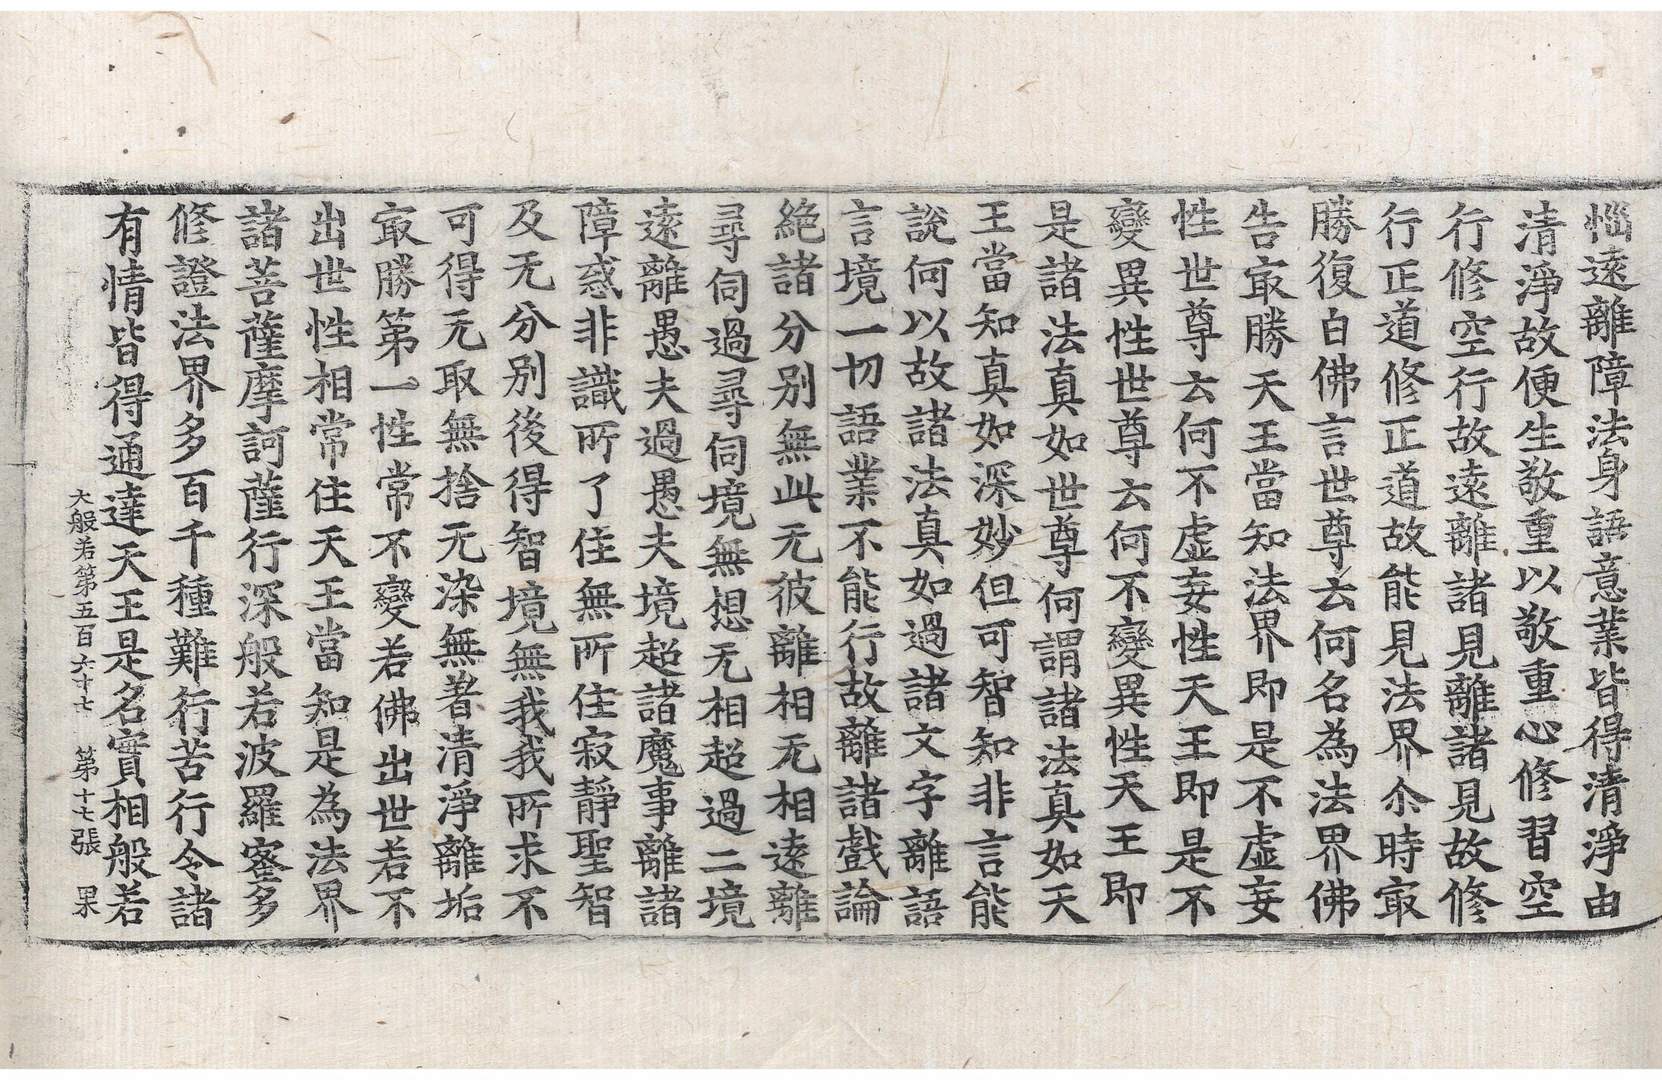 惱遠離障法身語意業皆得清淨由
清淨故便生敬重以敬重心修習空
行修空行故遠離諸見離諸見故修
行正道修正道故能見法界尒時㝡
勝復白佛言世尊云何名為法界佛
告㝡勝天王當知法界即是不虛妄
性世尊云何不虛妄性天王即是不
變異性世尊云何不變異性天王即
是諸法真如世尊何謂諸法真如天
王當知真如深妙但可智知非言能
說何以故諸法真如過諸文字離語
言境一切語業不能行故離諸戲論
絕諸分別無此无彼離相无相遠離
尋伺過尋伺境無想无相超過二境
遠離愚夫過愚夫境超諸魔事離諸
障惑非識所了住無所住寂靜聖智
及无分別後得智境無我我所求不
可得无取無捨无染無著清淨離垢
㝡勝第一性常不變若佛出世若不
出世性相常住天王當知是為法界
諸菩薩摩訶薩行深般若波羅蜜多
修證法界多百千種難行苦行令諸
有情皆得通達天王是名實相般若
大般若第五百六十七 第十七張 果